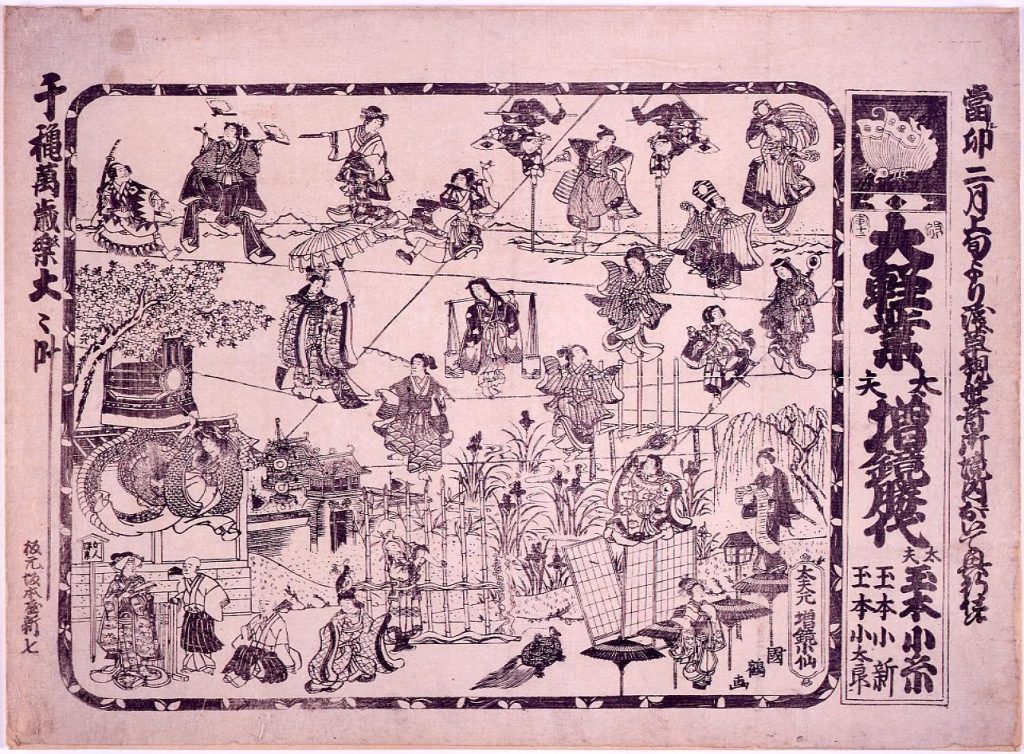 當卯二月上旬より浅草観世音御境内おいて興行仕候
大軽業
太夫 増鏡勝代
太夫 玉本小糸
玉本小新
玉本小太良
太夫元 増鏡小仙
國鶴画
千穐萬歳樂大々叶
板元坂本屋新七